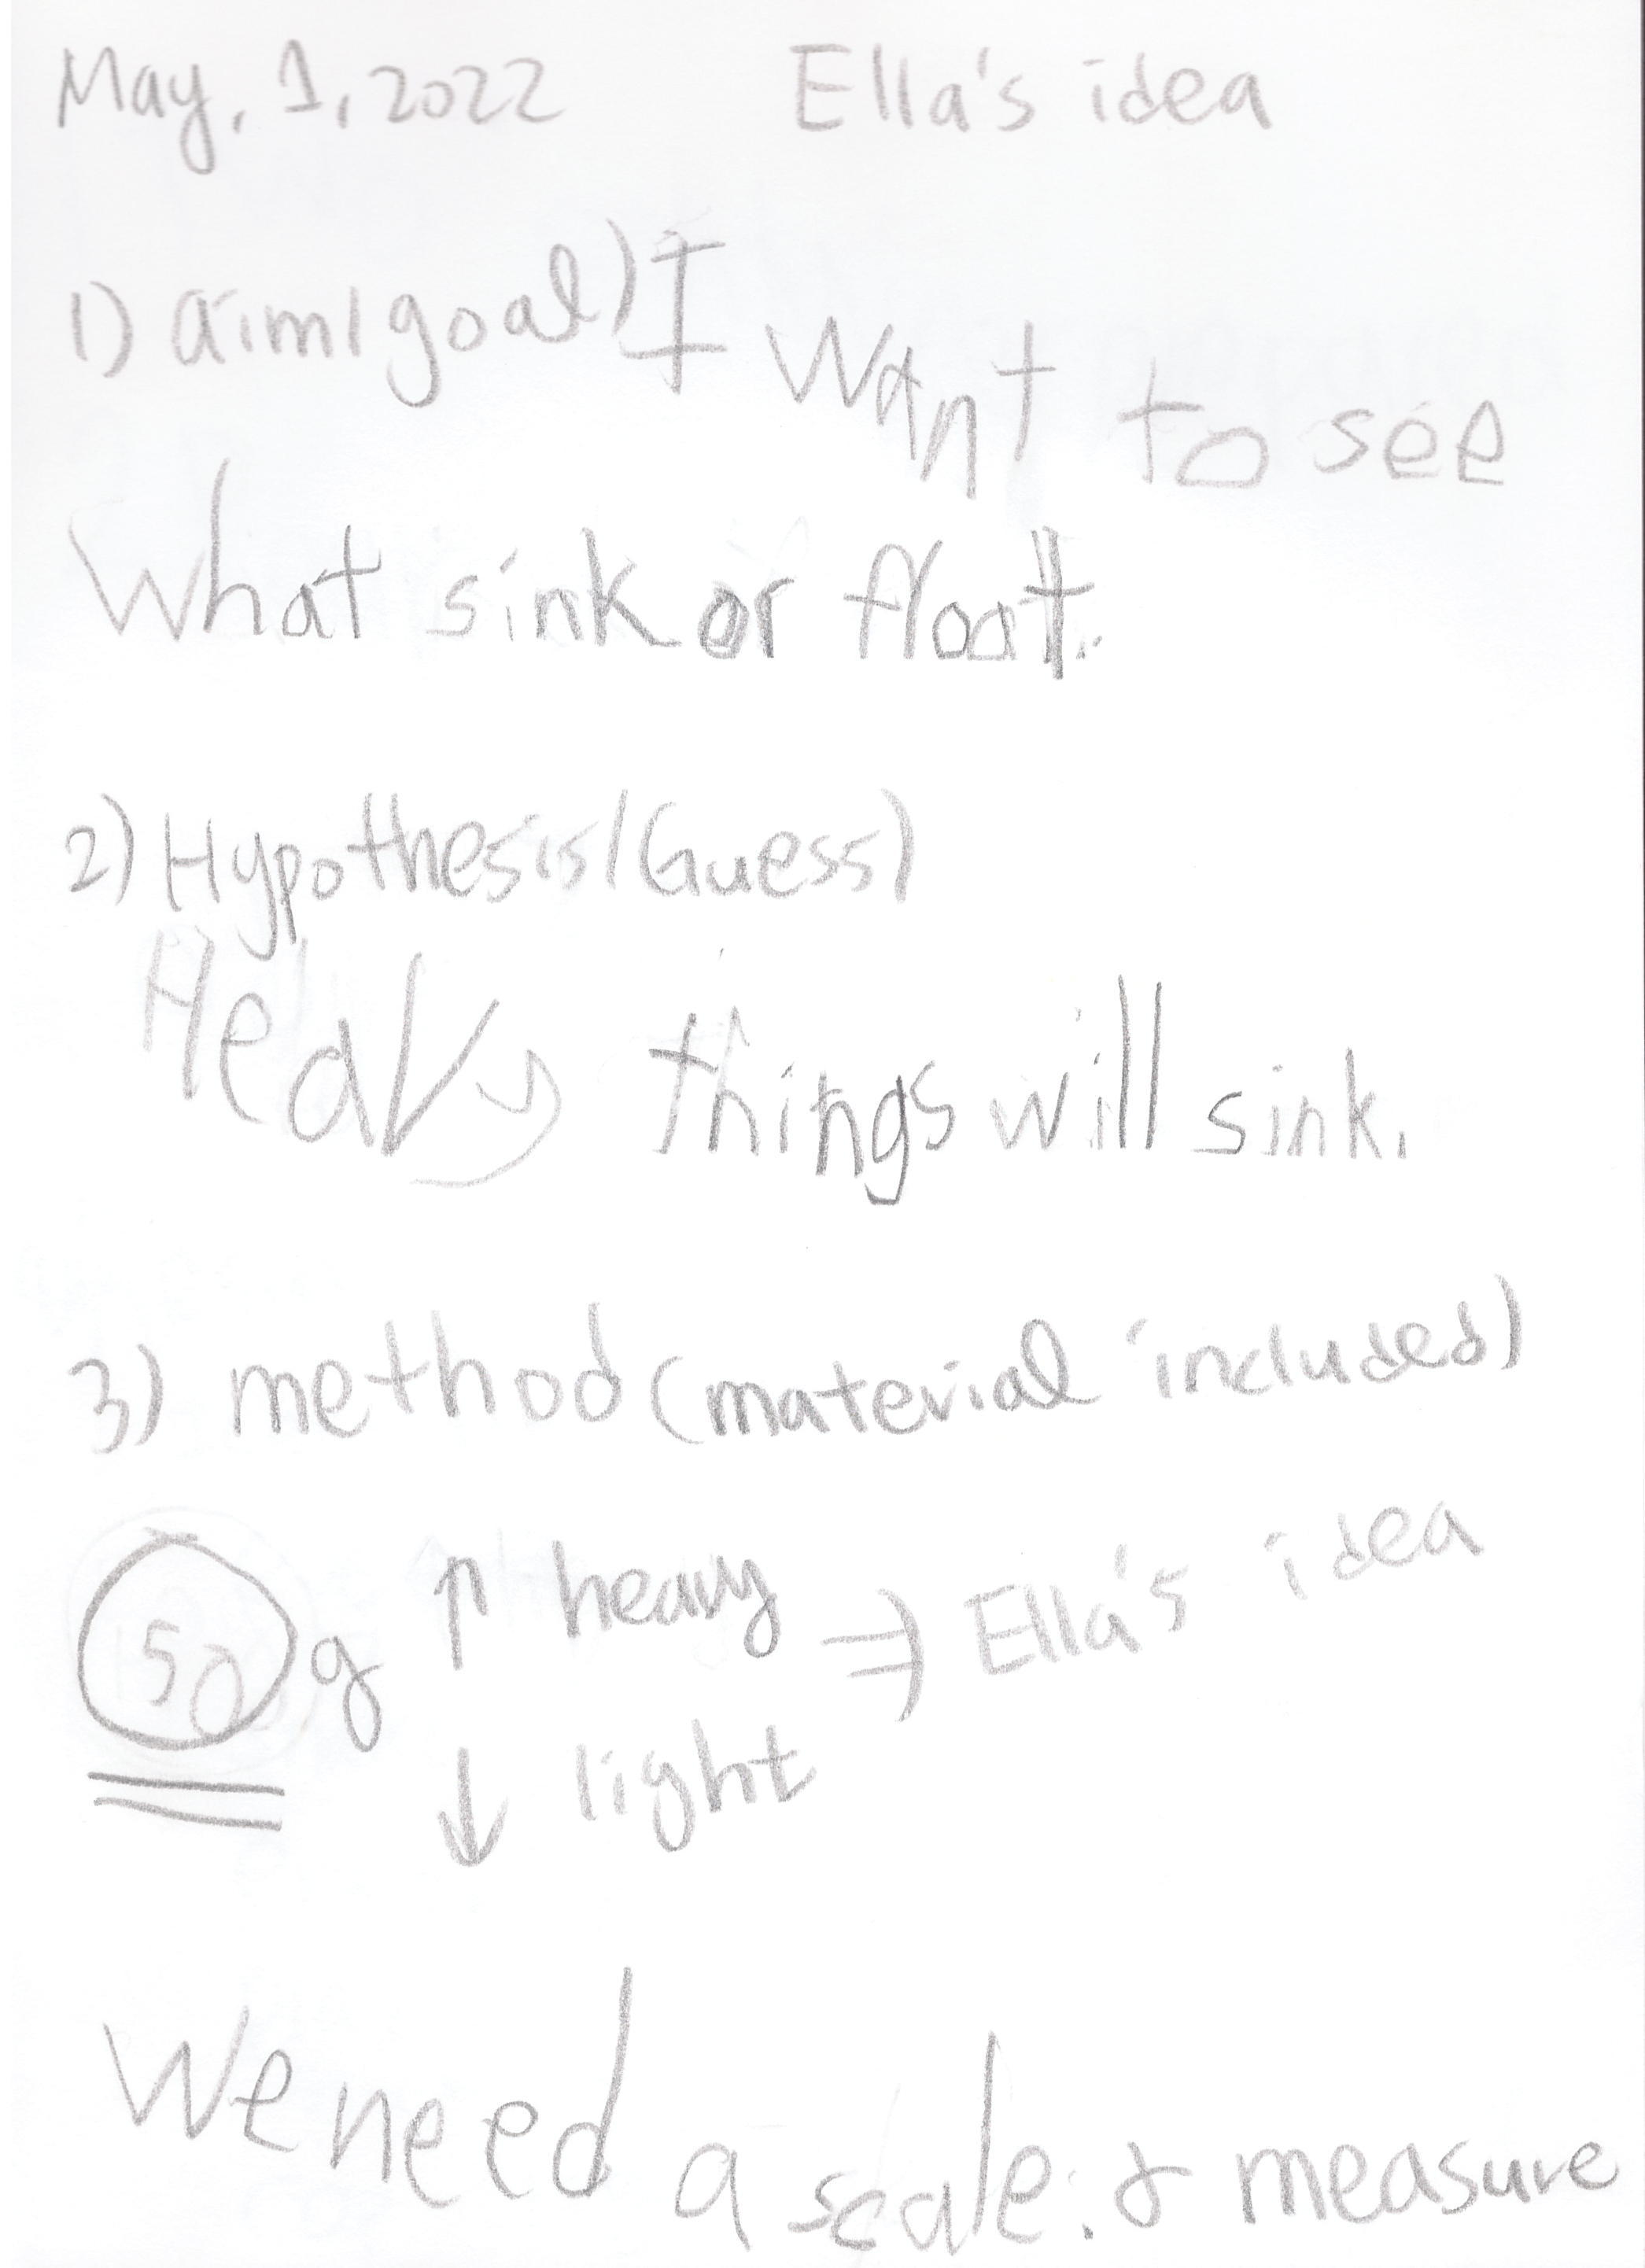 May, 1, 2022 Ella's idea
1) aim/goal) I want to see
What sink or float.
2) Hypothesis/(Guess)
Heavy things will sink.
3) method (material included)
50 g ↑ heavy ⇒ Ella's idea
↓ light
We need a scale. & measure